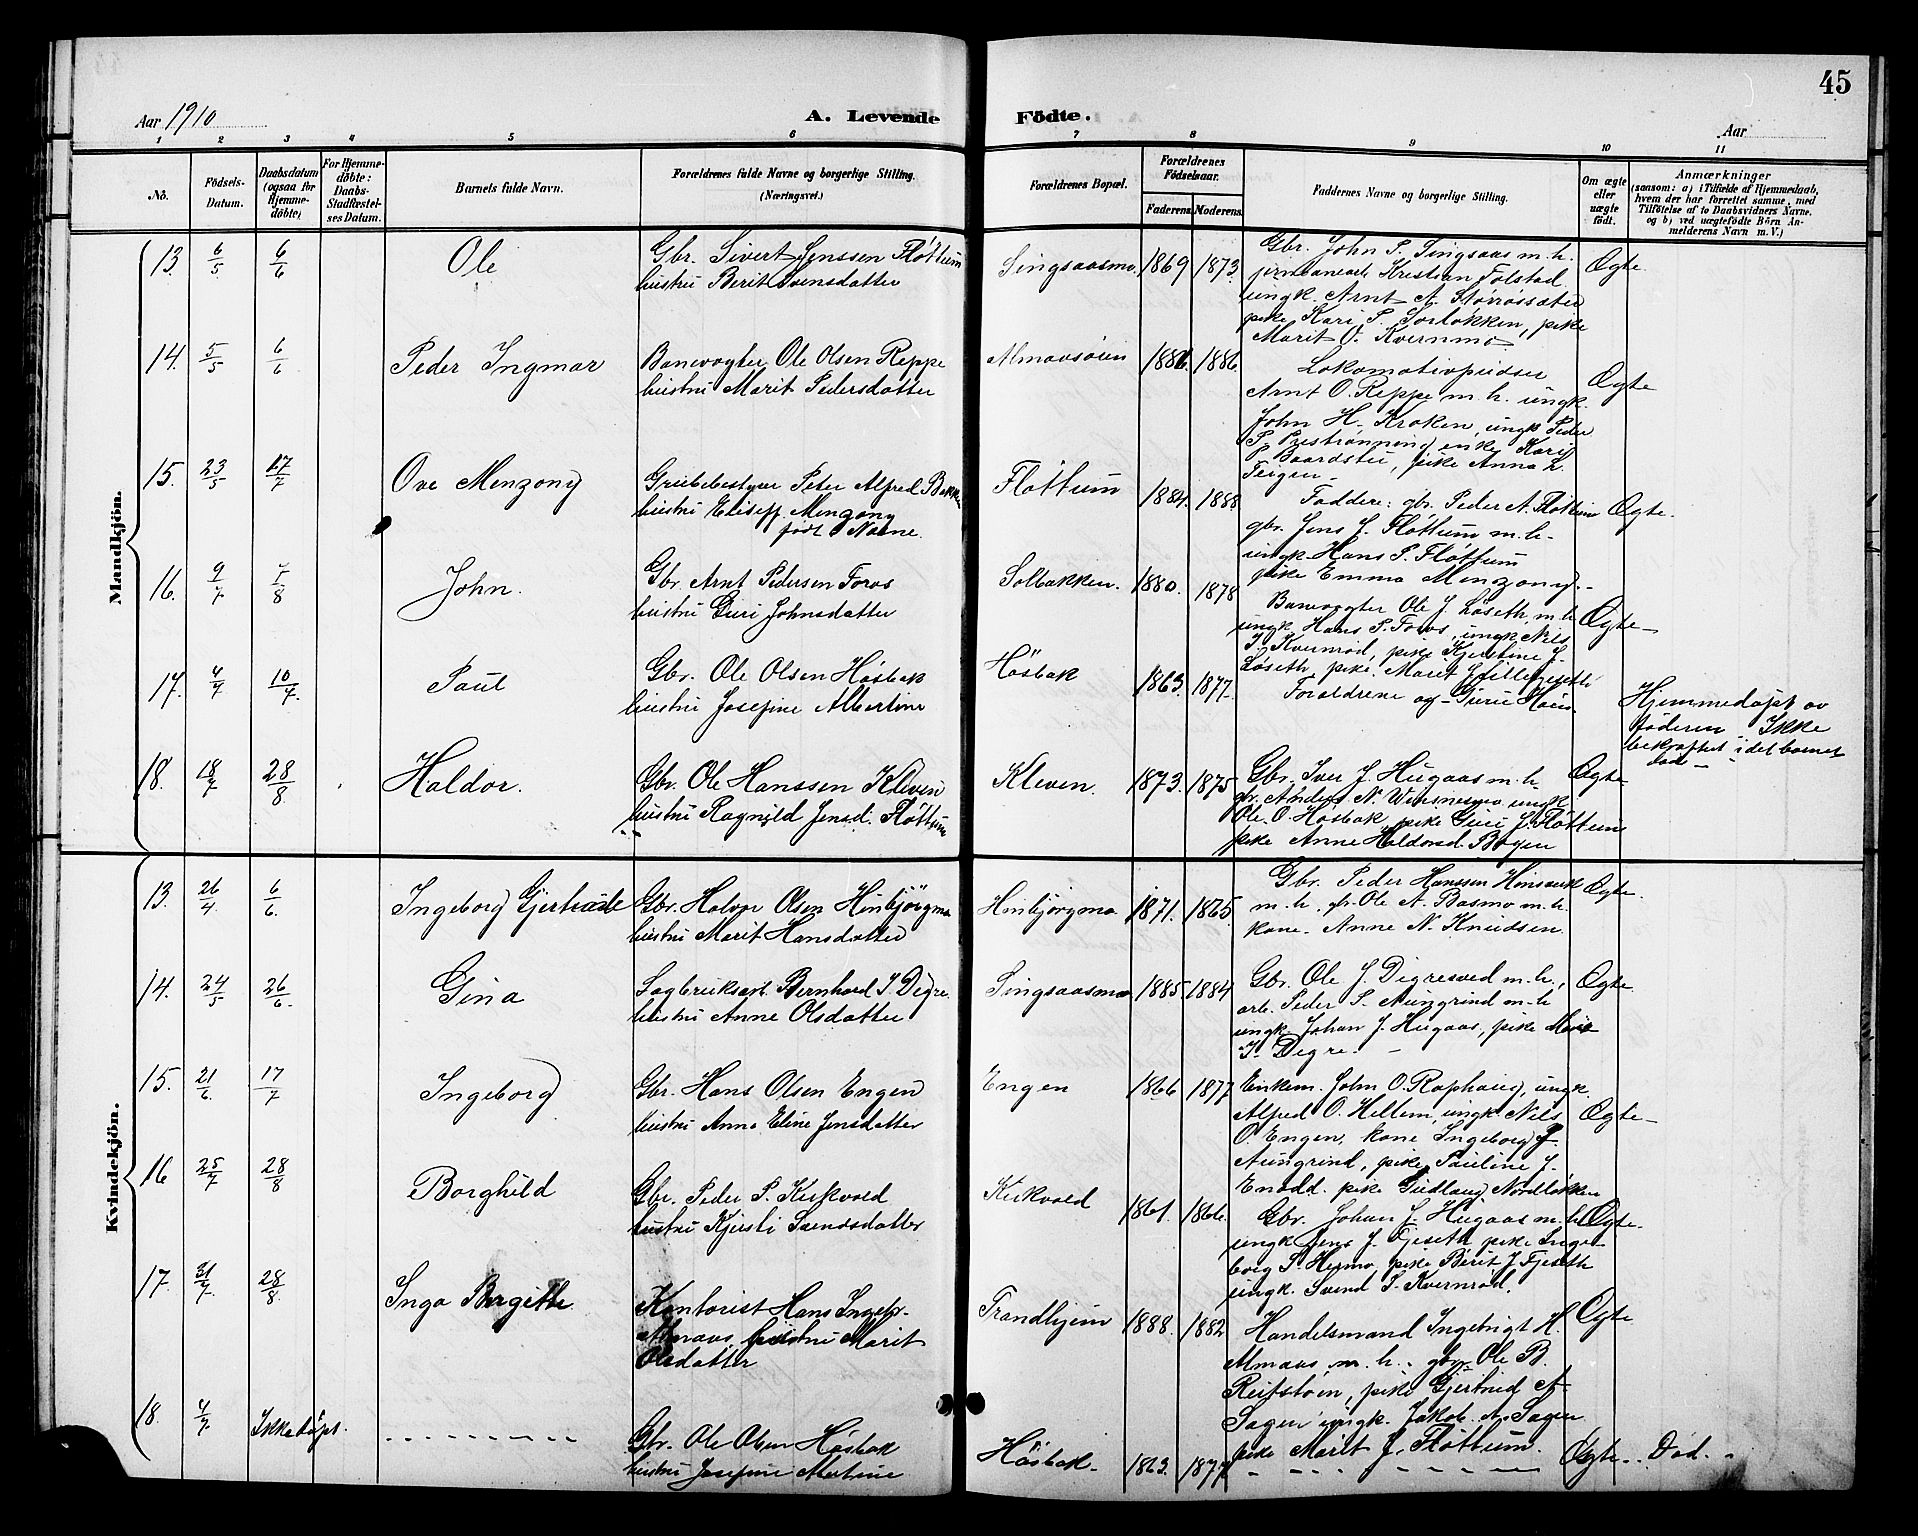 45
Aar 1910
A. Levende Födte.
Aar
1 2 3 4 5 6 7 8 9 10 11
No.
Födsels-Datum.
Daabsdatum (ogsaa for Hjemme-döbte)
For Hjemme-döbte: Daabs-Stadfæstel-ses Datum.
Barnets fulde Navn.
Forældrenes fulde Navne og borgerlige Stilling. (Næringsvei.)
Forældrenes Bopæl.
Forældrenes Födselsaar.
Faderens. Moderens.
Faddernes Navne og borgerlige Stilling.
Om ægte eller uægte födt.
Anmærkninger
(saasom: a) i Tilfælde af Hjemmedaab,
hvem der har forrettet samme, med
Tilföielse af to Daabsvidners Navne,
og b) ved uægtefödte Börn An-
melderens Navn m. V.)
Mandkjön.
13. 6/5 6/6 Ole
Gbr. Sivert Jenssen Fløttum
hustru Berit Svensdatter
Singsaasmo 1869 1873.
Gbr. John P. Singsaas m. h.
Kristian Folstad
ungk. Arnt A. Størrøssæter
pike Kari P. Sorløkken, pike
Marit O. Kvernmo
Ægte
14. 5/5 6/6 Peder Ingmar
Banevogter Ole Olsen Reppe
hustru Marit Pedersdatter
Almaasøien 1886.
Lokomotivpudser
Arnt O. Reppe m. h. ungk.
John H. Kroken, ungk Peder
P. Prestrønning enke Kari
P. Baardstu, pike Anna L.
Teigen
Ægte
15. 23/5 17/7 Ove Menzony
Grubebestyrer Peter Alfred Bakke
hustru Elisef Menzony
født Narne.
Fløttum 1884. 1888.
Faddere: gbr. Peder A. Fløttum
gbr. Jens J. Fløttum m. h.
ungk. Hans P. Fløttum
pike Emma Menzony.
Ægte.
16. 9/7 7/8 John.
Gbr. Arnt Pedersen Foros
hustru Guri Johnsdatter
Solbakken. 1880. 1878
Banevogter Ole J. Løseth m. h
ungk. Hans P. Foros, ungk Nils
J. Kvernrød, pike Kjerstine J.
Løseth pike Marit J.
Ægte
17. 4/7 10/7. Paul
Gbr. Ole Olsen Høsbak
hustru Josefine Albertine
Høsbak 1863. 1877.
Forældrene og Guru Høus.
Hjemmedøpt av
faderen Ikke
bekræftet idet barnet
død
18. 18/7 28/8 Haldor.
Gbr. Ole Hanssen Kleven
hustru Ragnild Jensd. Fløttum
Kleven. 1873. 1875
Gbr. Iver J. Hugaas m. h.
gbr. Anders N. Winsnesmo ungk
Ole. O. Høsbak pike Guri J. Fløttum
pike Anne Haldorsd. Bogen
Ægte
Kvindekjön.
13. 26/4 6/6. Ingeborg Gjertrude
Gbr. Halvor Olsen Hinbjörgmo
hustru Marit Hansdatter
Hinbjörgmo 1871. 1865.
Gbr. Peder Hanssen
m. h. gbr Ole A. Basmo m. h.
kone. Anne N. Knudsen.
Ægte.
14. 24/5 26/6. Gina
Sagbruksarb. Bernhard J. Digre.
hustru Anne Olsdatter
Singsaasmo 1885 1884
Gbr. Ole J. Digresved m. h.,
arb. Peder P. Aunegrind m. h
ungk. Johan J. Hugaas, pike
J. Digre.
Ægte.
15. 21/6 17/7 Ingeborg
Gbr. Hans Olsen Engen
hustru Anna Eline Jensdatter
Engen 1866 1877
Enkem. John O. Raphaug, ungk.
Alfred O. Hellem, ungk Nils
O. Engen, kone Ingeborg J.
Aungrind, pike Pauline J.
Enodd. pike Gudlaug Nordløkken
Ægte
16 25/7 28/8 Borghild
Gbr. Peder P. Kirkvold
hustru Kjersti Svendsdatter
Kirkvold 1861. 1866.
Gbr. Johan J. Hugaas m. h
ungk. Jens J. Fjeseth pike Inge
borg S Hermo, pike Berit J Fjeseth
ungk. Svend S. Kvernrød.
Ægte.
17. 31/7. 28/8 Inga Bergitte
Kontorist Hans Ingebr.
Almaas, hustru Marit
Olsdatter
Trondhjem 1888. 1882
Handelsmand Ingebrigt H.
Almaas m. h. gbr. Ole B.
Reitstøen, pike Gjertrud A
Sagen ungk. Jakob. A. Sagen
pike Marit J. Fløttum.
Ægte
18. 4/7. Ikke døpt.
Gbr. Ole Olsen Høsbak
hustru Josefine
Høsbak. 1863. 1877
Ægte. Død.